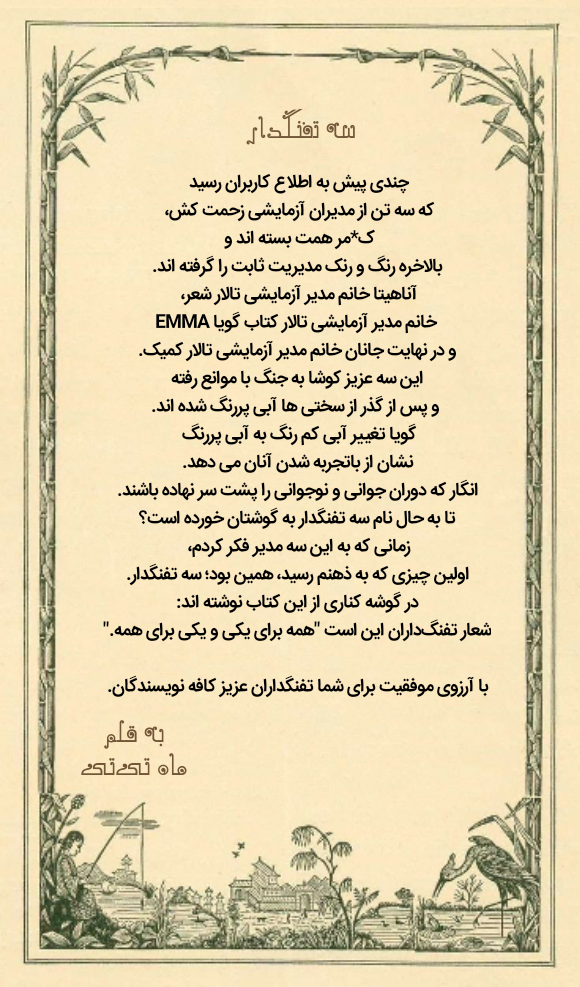 سه تفنگدار
چندی پیش به اطلاع کاربران رسید
که سه تن از مدیران آزمایشی زحمت کش،
ک*مر همت بسته اند و
بالاخره رنگ و رنک مدیریت ثابت را گرفته اند.
آناهیتا خانم مدیر آزمایشی تالار شعر،
خانم مدیر آزمایشی تالار کتاب گویا EMMA
و در نهایت جانان خانم مدیر آزمایشی تالار کمیک.
این سه عزیز کوشا به جنگ با موانع رفته
و پس از گذر از سختی ها آبی پررنگ شده اند.
گویا تغییر آبی کم رنگ به آبی پررنگ
نشان از باتجربه شدن آنان می دهد.
انگار که دوران جوانی و نوجوانی را پشت سر نهاده باشند.
تا به حال نام سه تفنگدار به گوشتان خورده است؟
زمانی که به این سه مدیر فکر کردم،
اولین چیزی که به ذهنم رسید، همین بود؛ سه تفنگدار.
در گوشه کناری از این کتاب نوشته اند:
شعار تفنگ‌داران این است "همه برای یکی و یکی برای همه."
با آرزوی موفقیت برای شما تفنگداران عزیز کافه نویسندگان.
به قلم
ماه تی‌تی